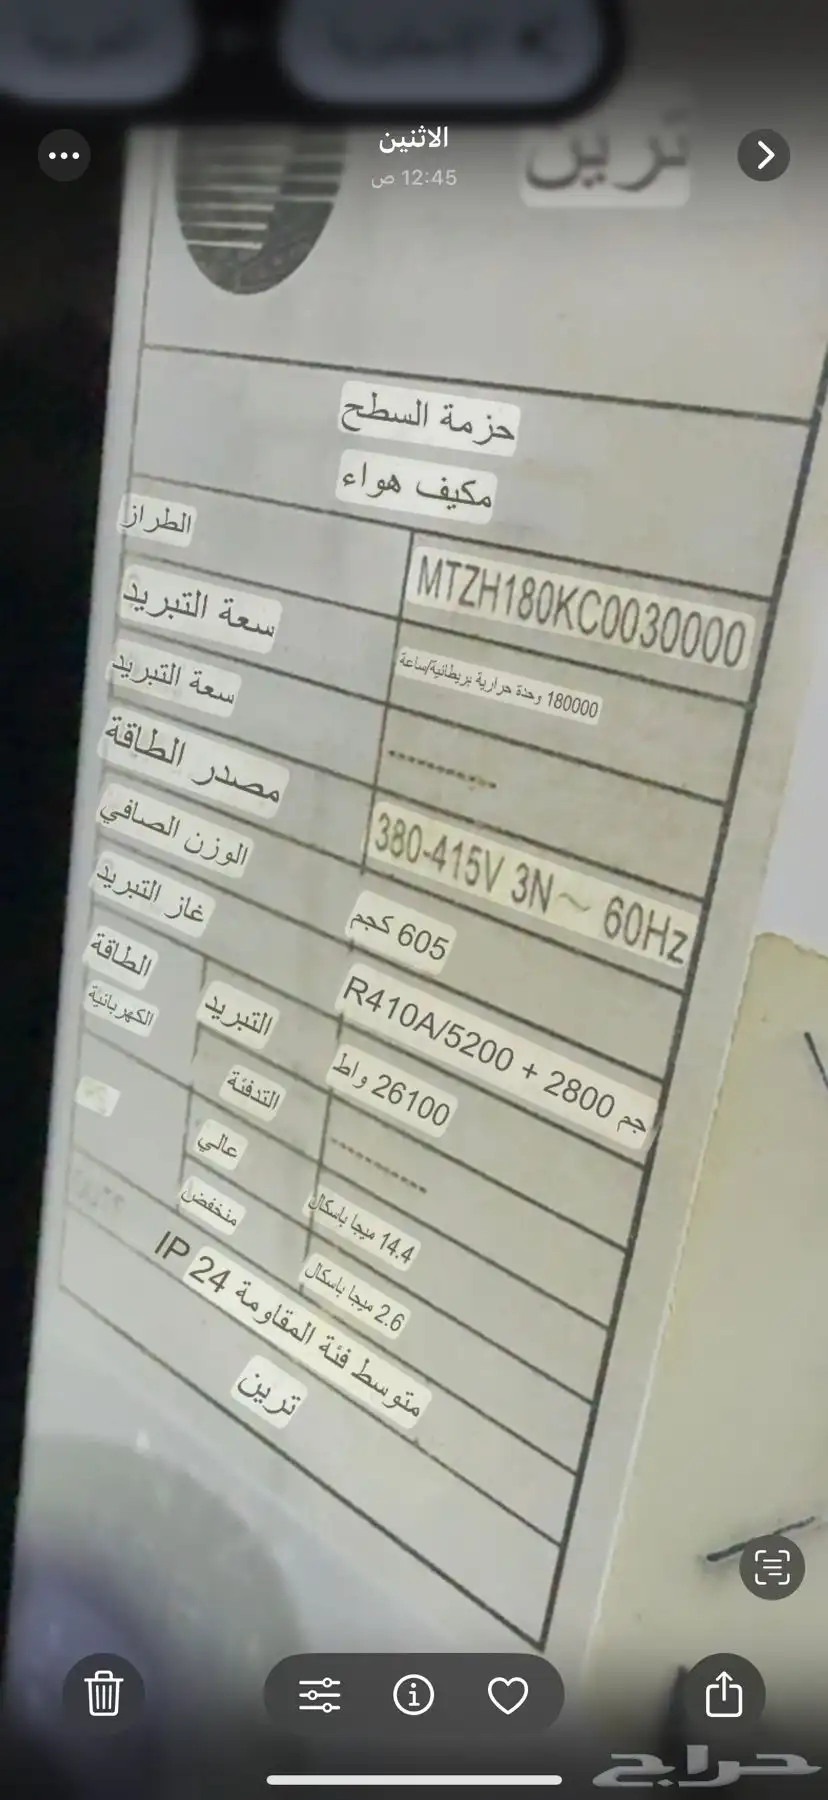 الاثنين
12:45 ص
ترين
حزمة السطح
مكيف هواء
الطراز MTZH180KC0030000
سعة التبريد 180000 وحدة حرارية بريطانية/ساعة
سعة التبريد ----------
مصدر الطاقة 380-415V 3N~ 60Hz
الوزن الصافي 605 كجم
غاز التبريد R410A/5200 + 2800 جم
الطاقة الكهربائية
التبريد 26100 واط
التدفئة ----------
عالي 14.4 ميجا باسكال
منخفض 2.6 ميجا باسكال
متوسط فئة المقاومة IP 24
ترين
حراج